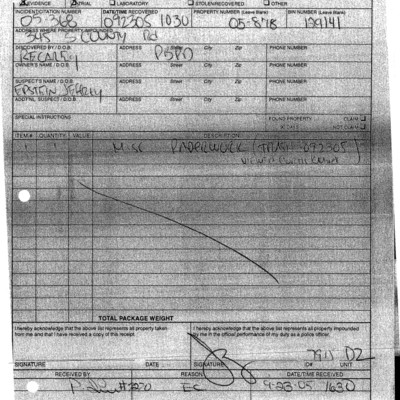 EVIDENCE TRIAL LABORATORY STOLEN/RECOVERED OTHER
INCIDENT/CITATION NUMBER DATE/TIME RECOVERED PROPERTY NUMBER (Leave Blank) BIN NUMBER (Leave Blank)
05-368 092305 1030 05-878 199141
ADDRESS WHERE PROPERTY IMPOUNDED
345 S COUNTY Rd
DISCOVERED BY/D.O.B. ADDRESS Street City Zip PHONE NUMBER
RECAREY PBPD
OWNER'S NAME/D.O.B. ADDRESS Street City Zip PHONE NUMBER
SUSPECT'S NAME/D.O.B. ADDRESS Street City Zip PHONE NUMBER
EPSTEIN JEFFREY
ADDT'NL SUSPECT/D.O.B. ADDRESS Street City Zip PHONE NUMBER
SPECIAL INSTRUCTIONS FOUND PROPERTY CLAIM
NOT CLAIM
ITEM QUANTITY VALUE DESCRIPTION
1 1 MISC PAPERWORK (TRASH 092305)
TOTAL PACKAGE WEIGHT
I hereby acknowledge that the above list represents all property taken from me and that I have received a copy of this receipt.
I hereby acknowledge that the above list represents all property impounded by me in the official performance of my duty as a police officer.
SIGNATURE DATE SIGNATURE OF UNIT
RECEIVED BY REASON DATE/TIME RECEIVED
EC 9-23-05 1630